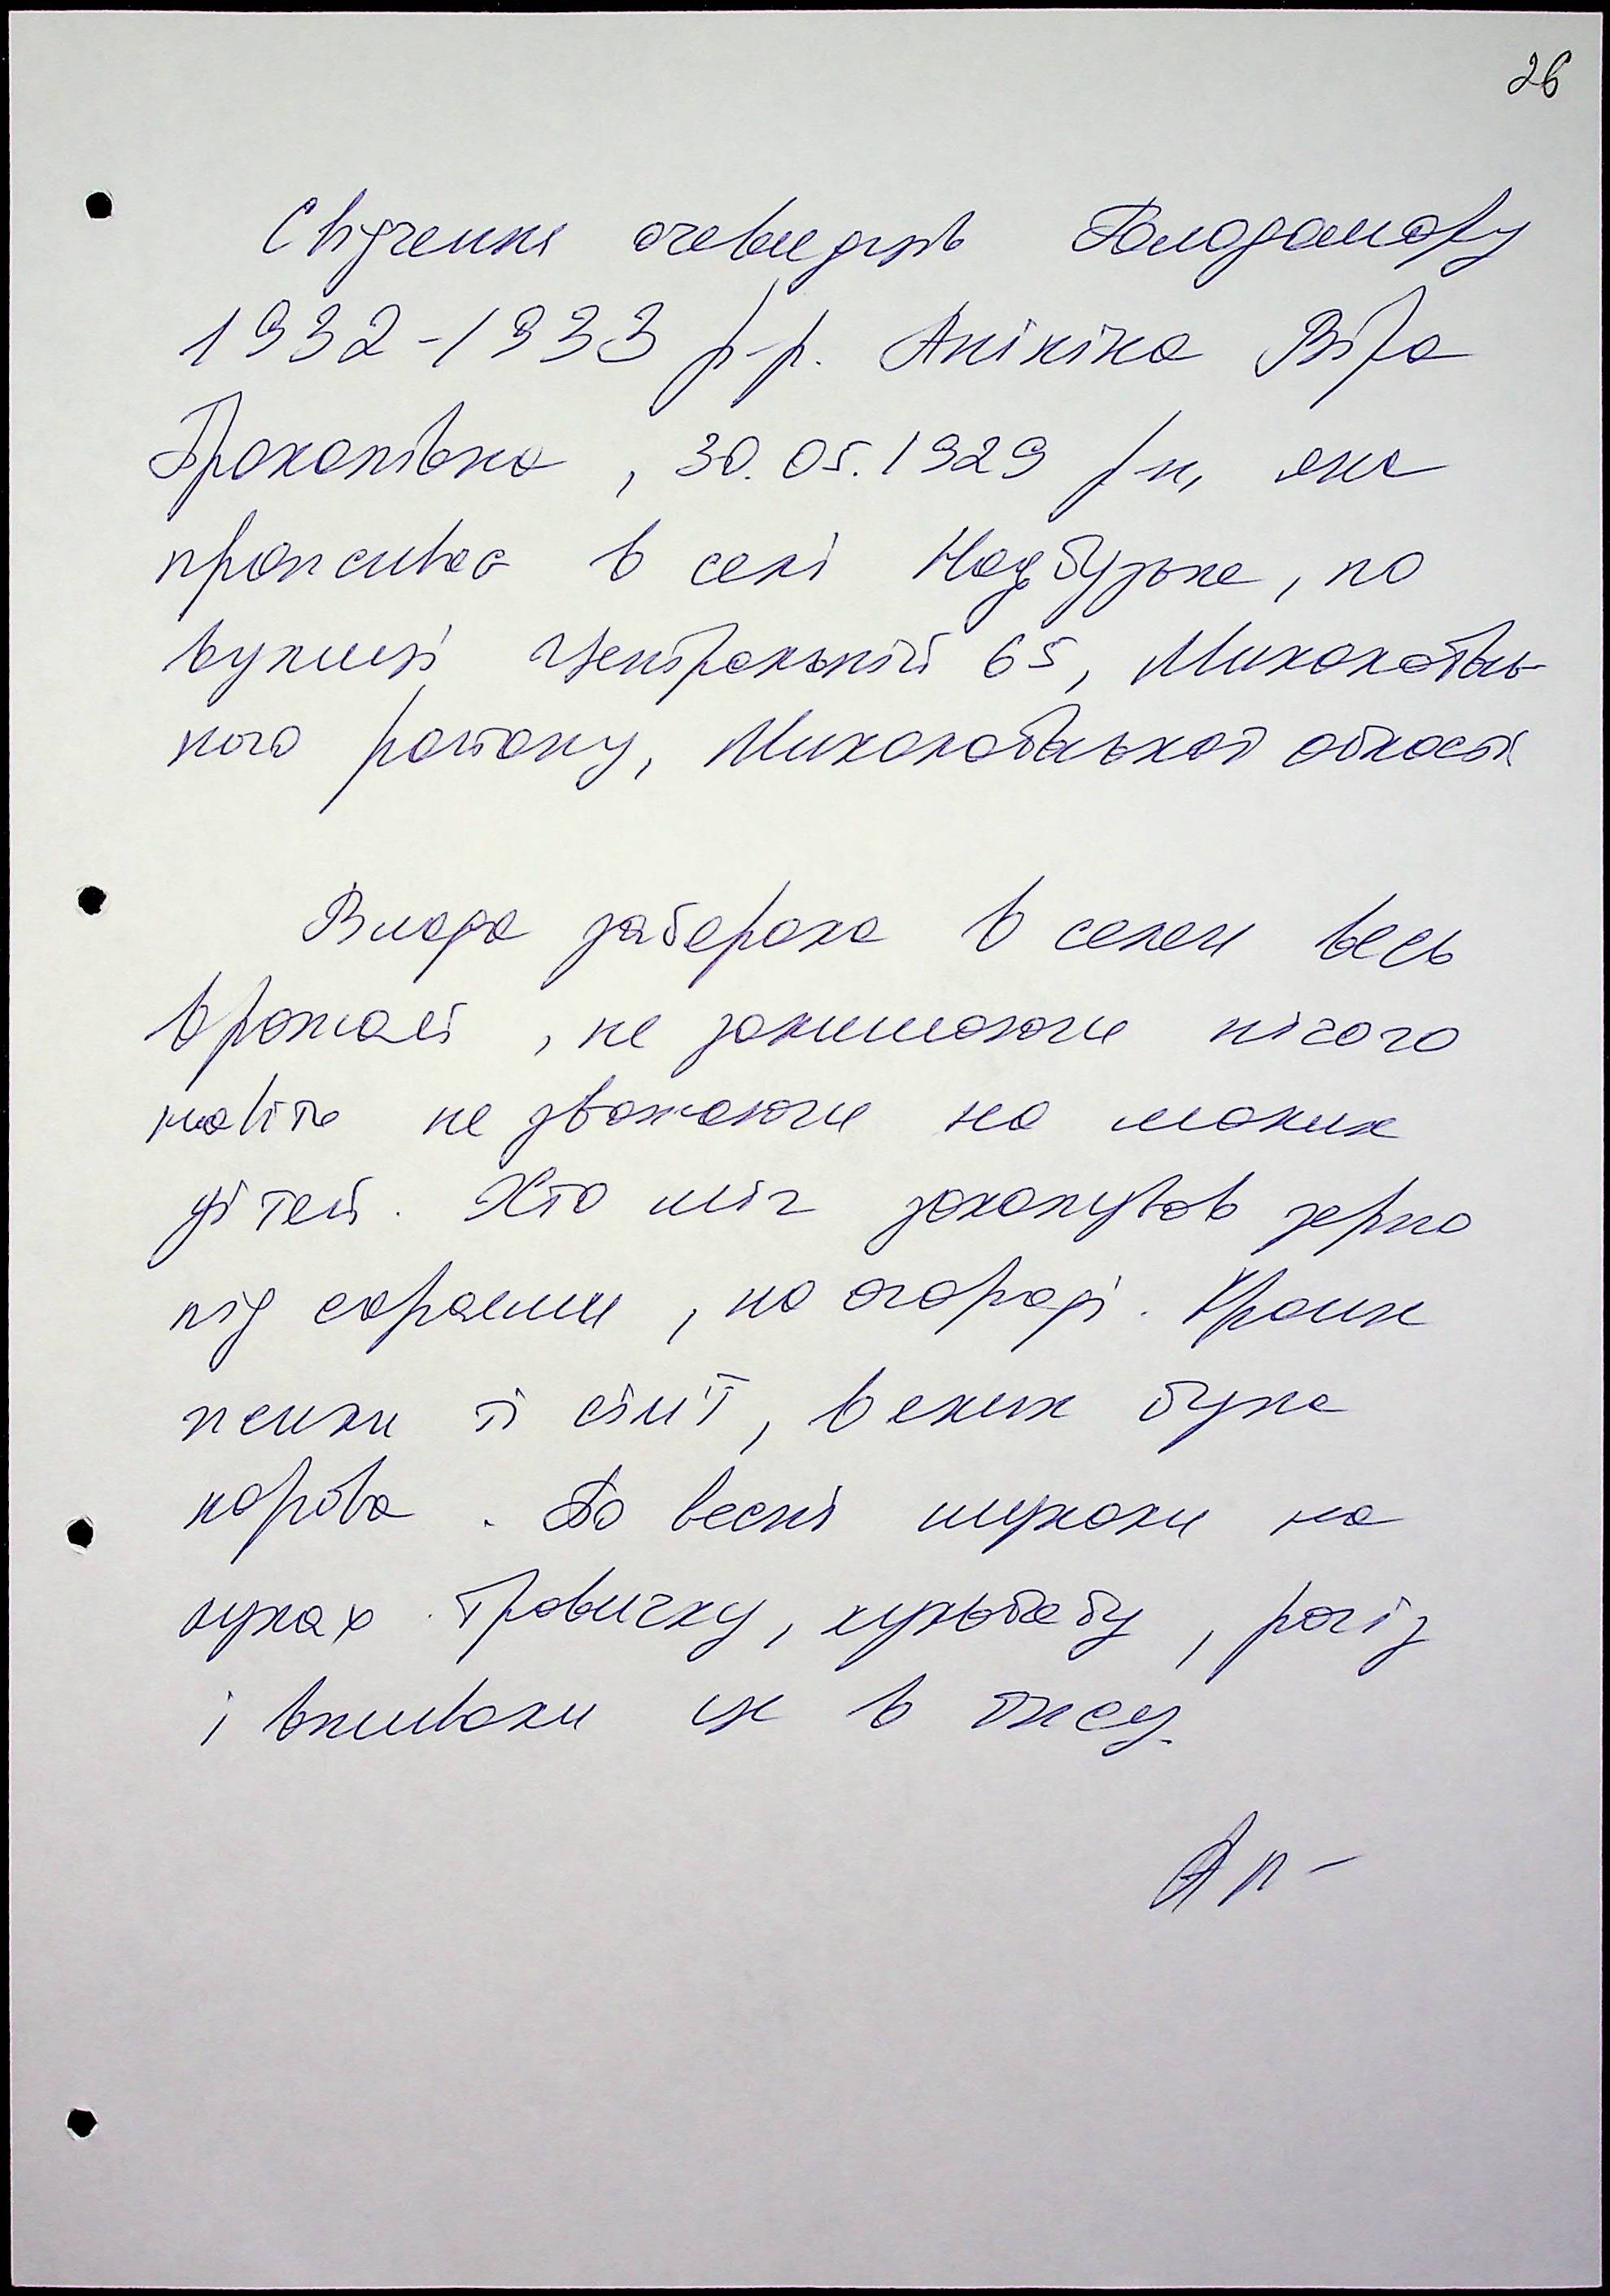 26
Свідчення очевидців Голодомору
1932-1933 р-р. Анікіна Віра
Прокопівна, 30.05.1929 р-н, яка
проживає в селі Надбузьке, по
вулиці Центральній 65, Миколаївсь-
кого району, Миколаївської області
Влада забирала в селян весь
врожай, не залишаючи нічого
навіть не зважаючи на малих
дітей. Хто міг закопував зерно
під сараями, на огороді. Краще
жили ті сім'ї, в яких була
корова. По весні шукали на
луках травичку, кульбабу, рогіз
і вживали це в їжу.
Ан-